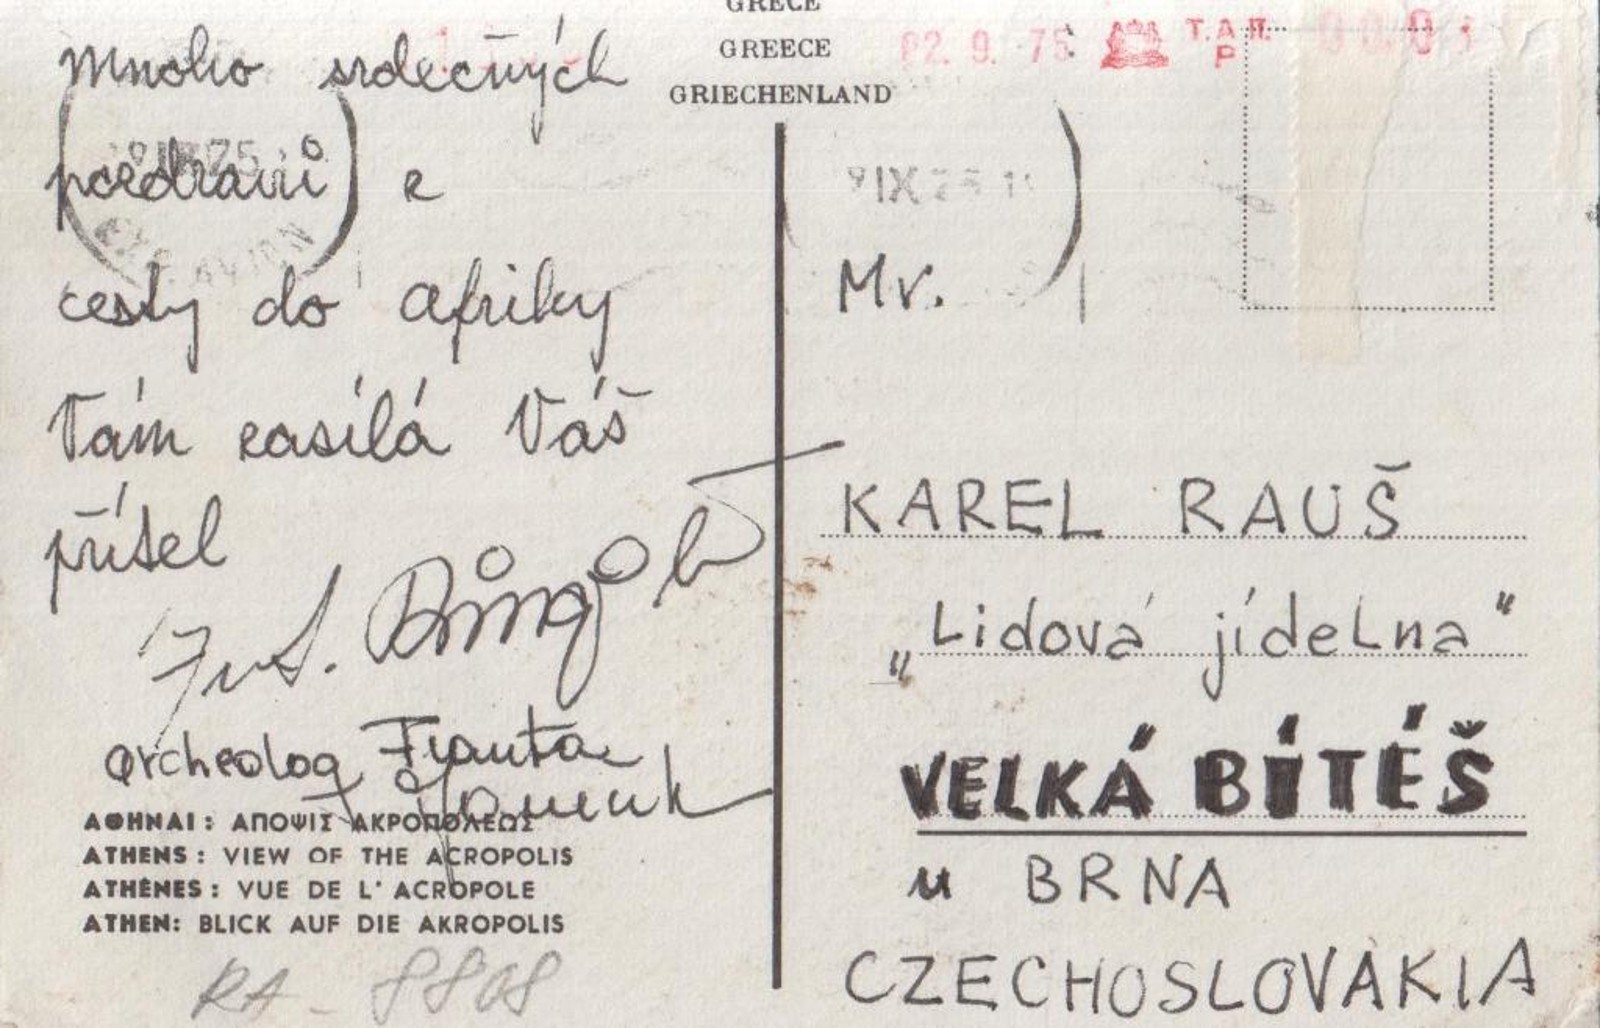 Mnoho srdečných
pozdravů z
cesty do afriky
Vám zasílá Váš
přítel
archeolog Franta
ΑΘΗΝΑΙ: ΑΠΟΨΙΣ ΑΚΡΟΠΟΛΕΩΣ
ATHENS: VIEW OF THE ACROPOLIS
ATHÈNES: VUE DE L' ACROPOLE
ATHEN: BLICK AUF DIE AKROPOLIS
RA - 8808
GRÈCE
GREECE
GRIECHENLAND
02. 9. 75
T.A.Π.
P
9 IX 75
Mr.
KAREL RAUŠ
„Lidová jídelna“
VELKÁ BÍTÉŠ
u BRNA
CZECHOSLOVAKIA